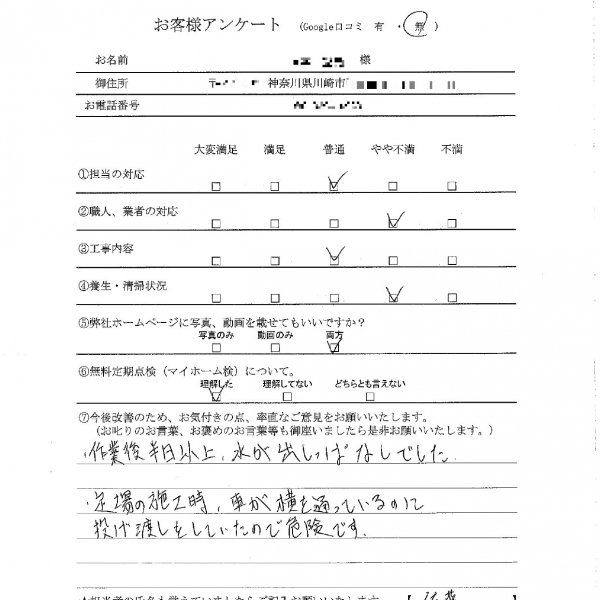 お客様アンケート (Google口コミ 有 ・ 無 )
お名前 様
御住所 〒 神奈川県川崎市
お電話番号
大変満足 満足 普通 やや不満 不満
①担当の対応
②職人、業者の対応
③工事内容
④養生・清掃状況
⑤弊社ホームページに写真、動画を載せてもいいですか?
写真のみ 動画のみ 両方
⑥無料定期点検（マイホーム検）について。
理解した 理解してない どちらとも言えない
⑦今後改善のため、お気付きの点、率直なご意見をお願いいたします。
（お叱りのお言葉、お褒めのお言葉等も御座いましたら是非お願いいたします。）
・作業後半日以上、水が出しっぱなしでした
・足場の施工時、車が横を通っているのに
投げ渡しをしていたので危険です.